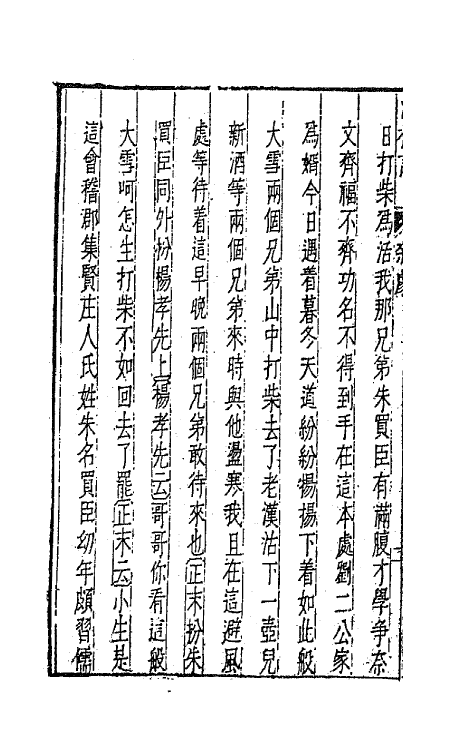 日打柴為活我那兄弟朱買臣有滿腹才學爭奈
文齊福不齊功名不得到手在這本處劉二公家
為婿今日遇着暮冬天道紛紛揚揚下着如此般
大雪兩個兄弟山中打柴去了老漢沽下一壺兒
新酒等兩個兄弟來時與他盪寒我且在這避風
處等待着這早晚兩個兄弟敢待來也正末扮朱
買臣同外扮楊孝先上楊孝先云哥哥你看這般
大雪呵怎生打柴不如回去了罷正末云小生是
這會稽郡集賢庄人氏姓朱名買臣幼年頗習儒